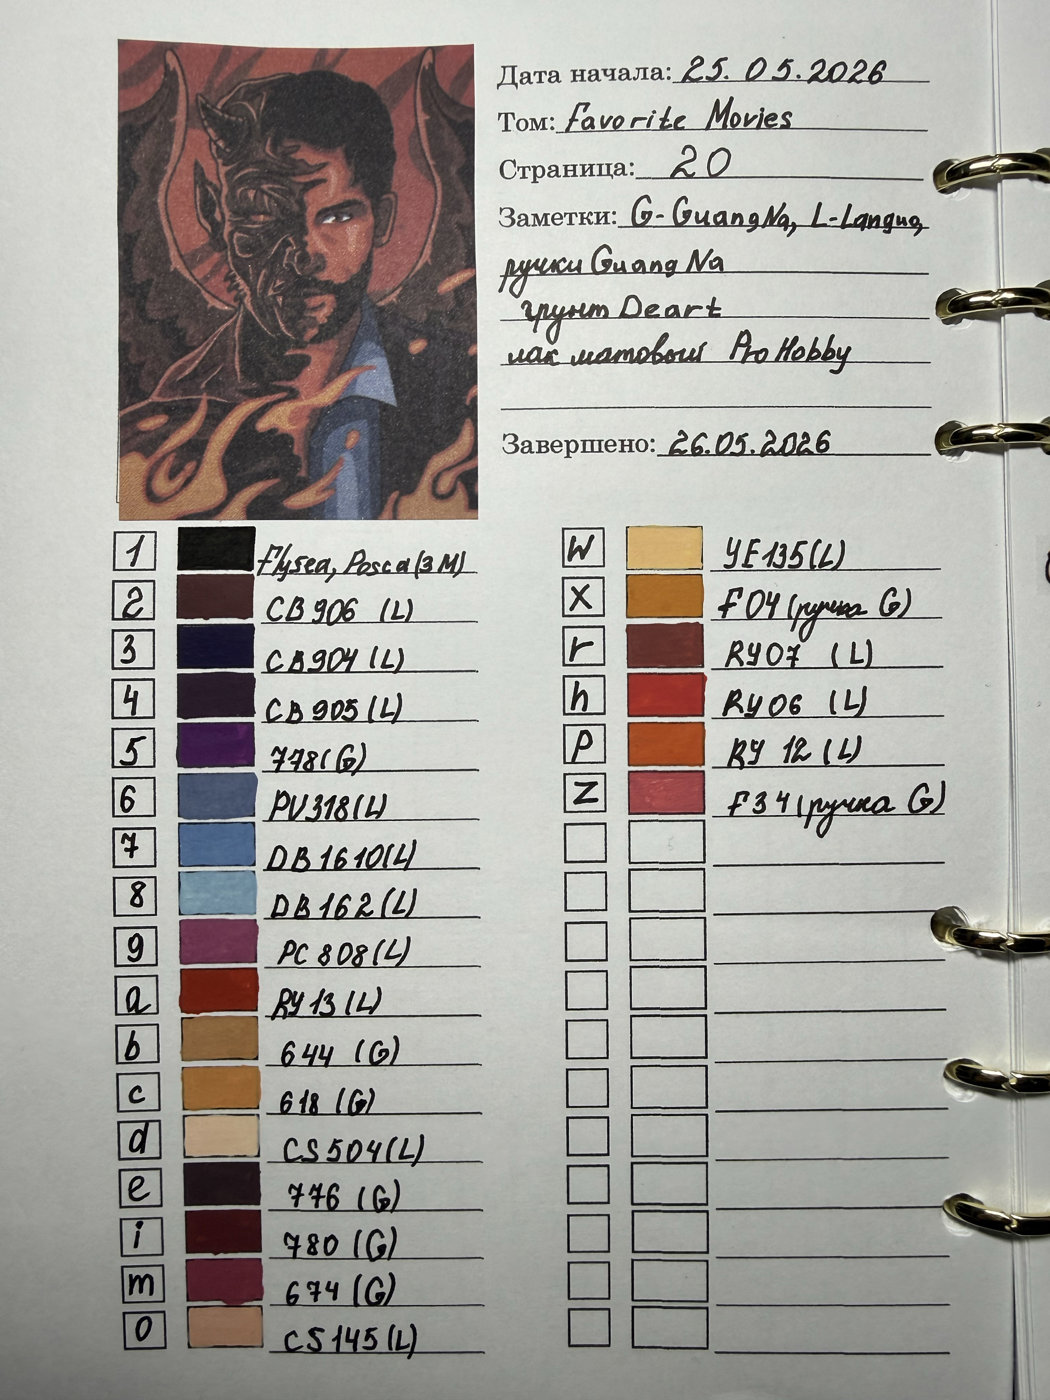 Дата начала: 25.05.2026
Том: Favorite Movies
Страница: 20
Заметки: G-GuangNa, L-Languo,
ручки GuangNa
грунт Deart
лак матовый ProHobby
Завершено: 26.05.2026
1 Flysea, Posca (3M)
2 CB906 (L)
3 CB904 (L)
4 CB905 (L)
5 778 (G)
6 PV318 (L)
7 DB1610 (L)
8 DB162 (L)
9 PC808 (L)
a RY13 (L)
b 644 (G)
c 618 (G)
d CS504 (L)
e 776 (G)
i 780 (G)
m 674 (G)
o CS145 (L)
w YE135 (L)
x F04 (ручка G)
r RY07 (L)
h RY06 (L)
p RY12 (L)
z F34 (ручка G)